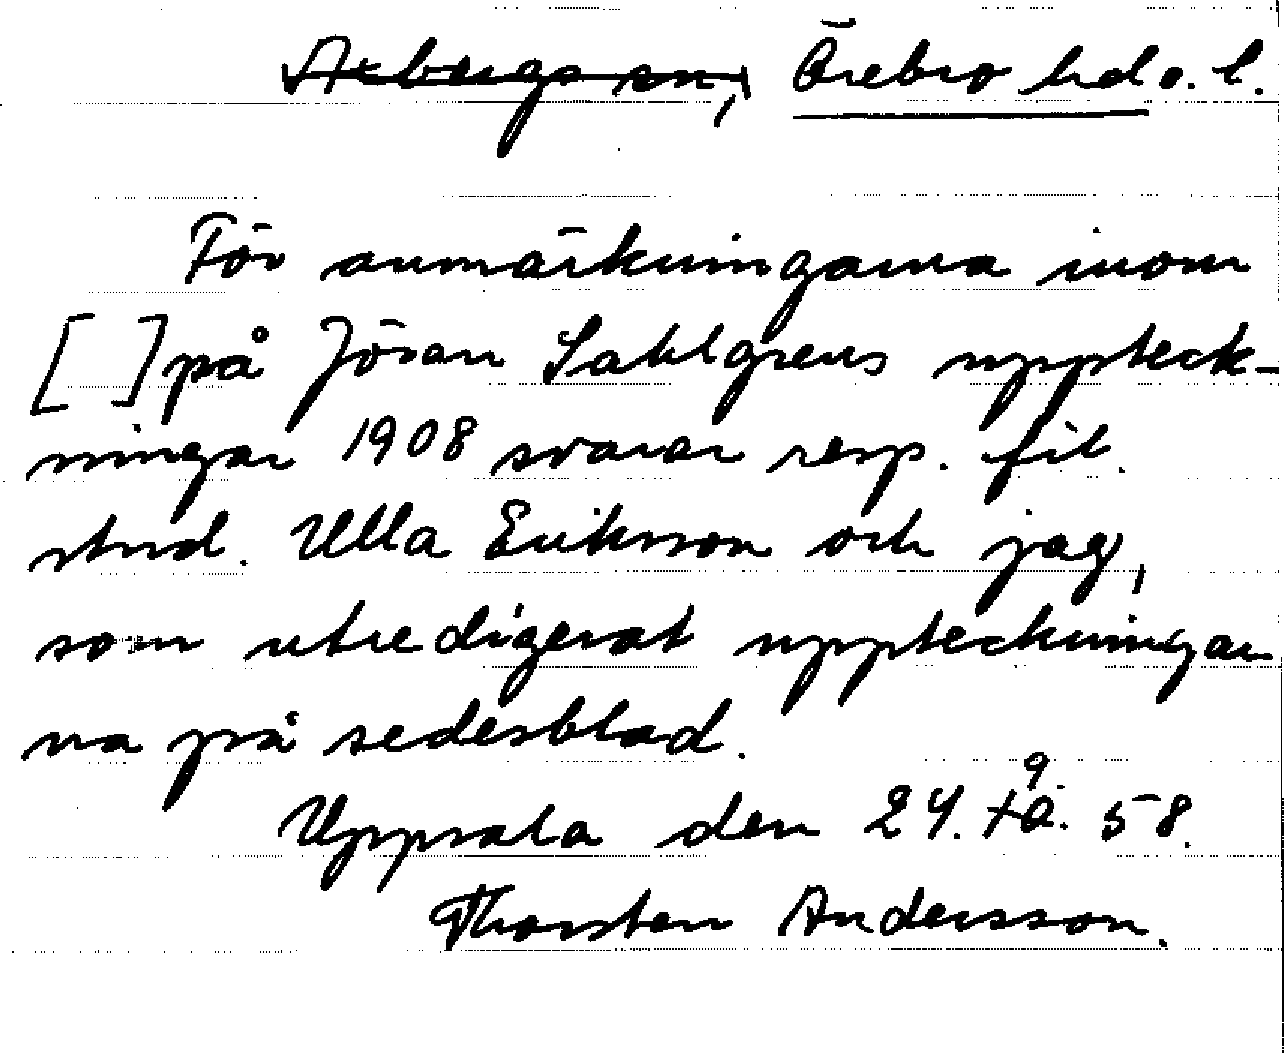 Arboga sn, Örebro hd o. l.
För anmärkningarna inom
[ ] på Jöran Sahlgrens uppteck-
ningar 1908 svarar resp. fil.
stud. Ulla Eriksson och jag,
som utredigerat uppteckningar
na på sedesblad.
Uppsala den 24. 9. 58.
Thorsten Andersson.